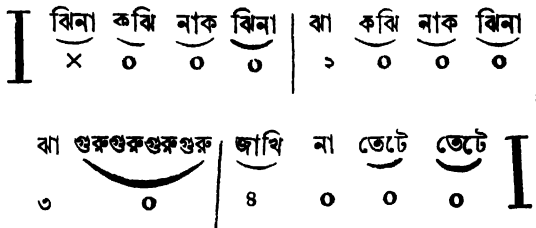 ঝিনা কঝি নাক ঝিনা | ঝা কঝি নাক ঝিনা
× ০ ০ ০ | ২ ০ ০ ০
ঝা গুরুগুরুগুরুগুরু | জাখি না তেটে তেটে
৩ ০ | ৪ ০ ০ ০